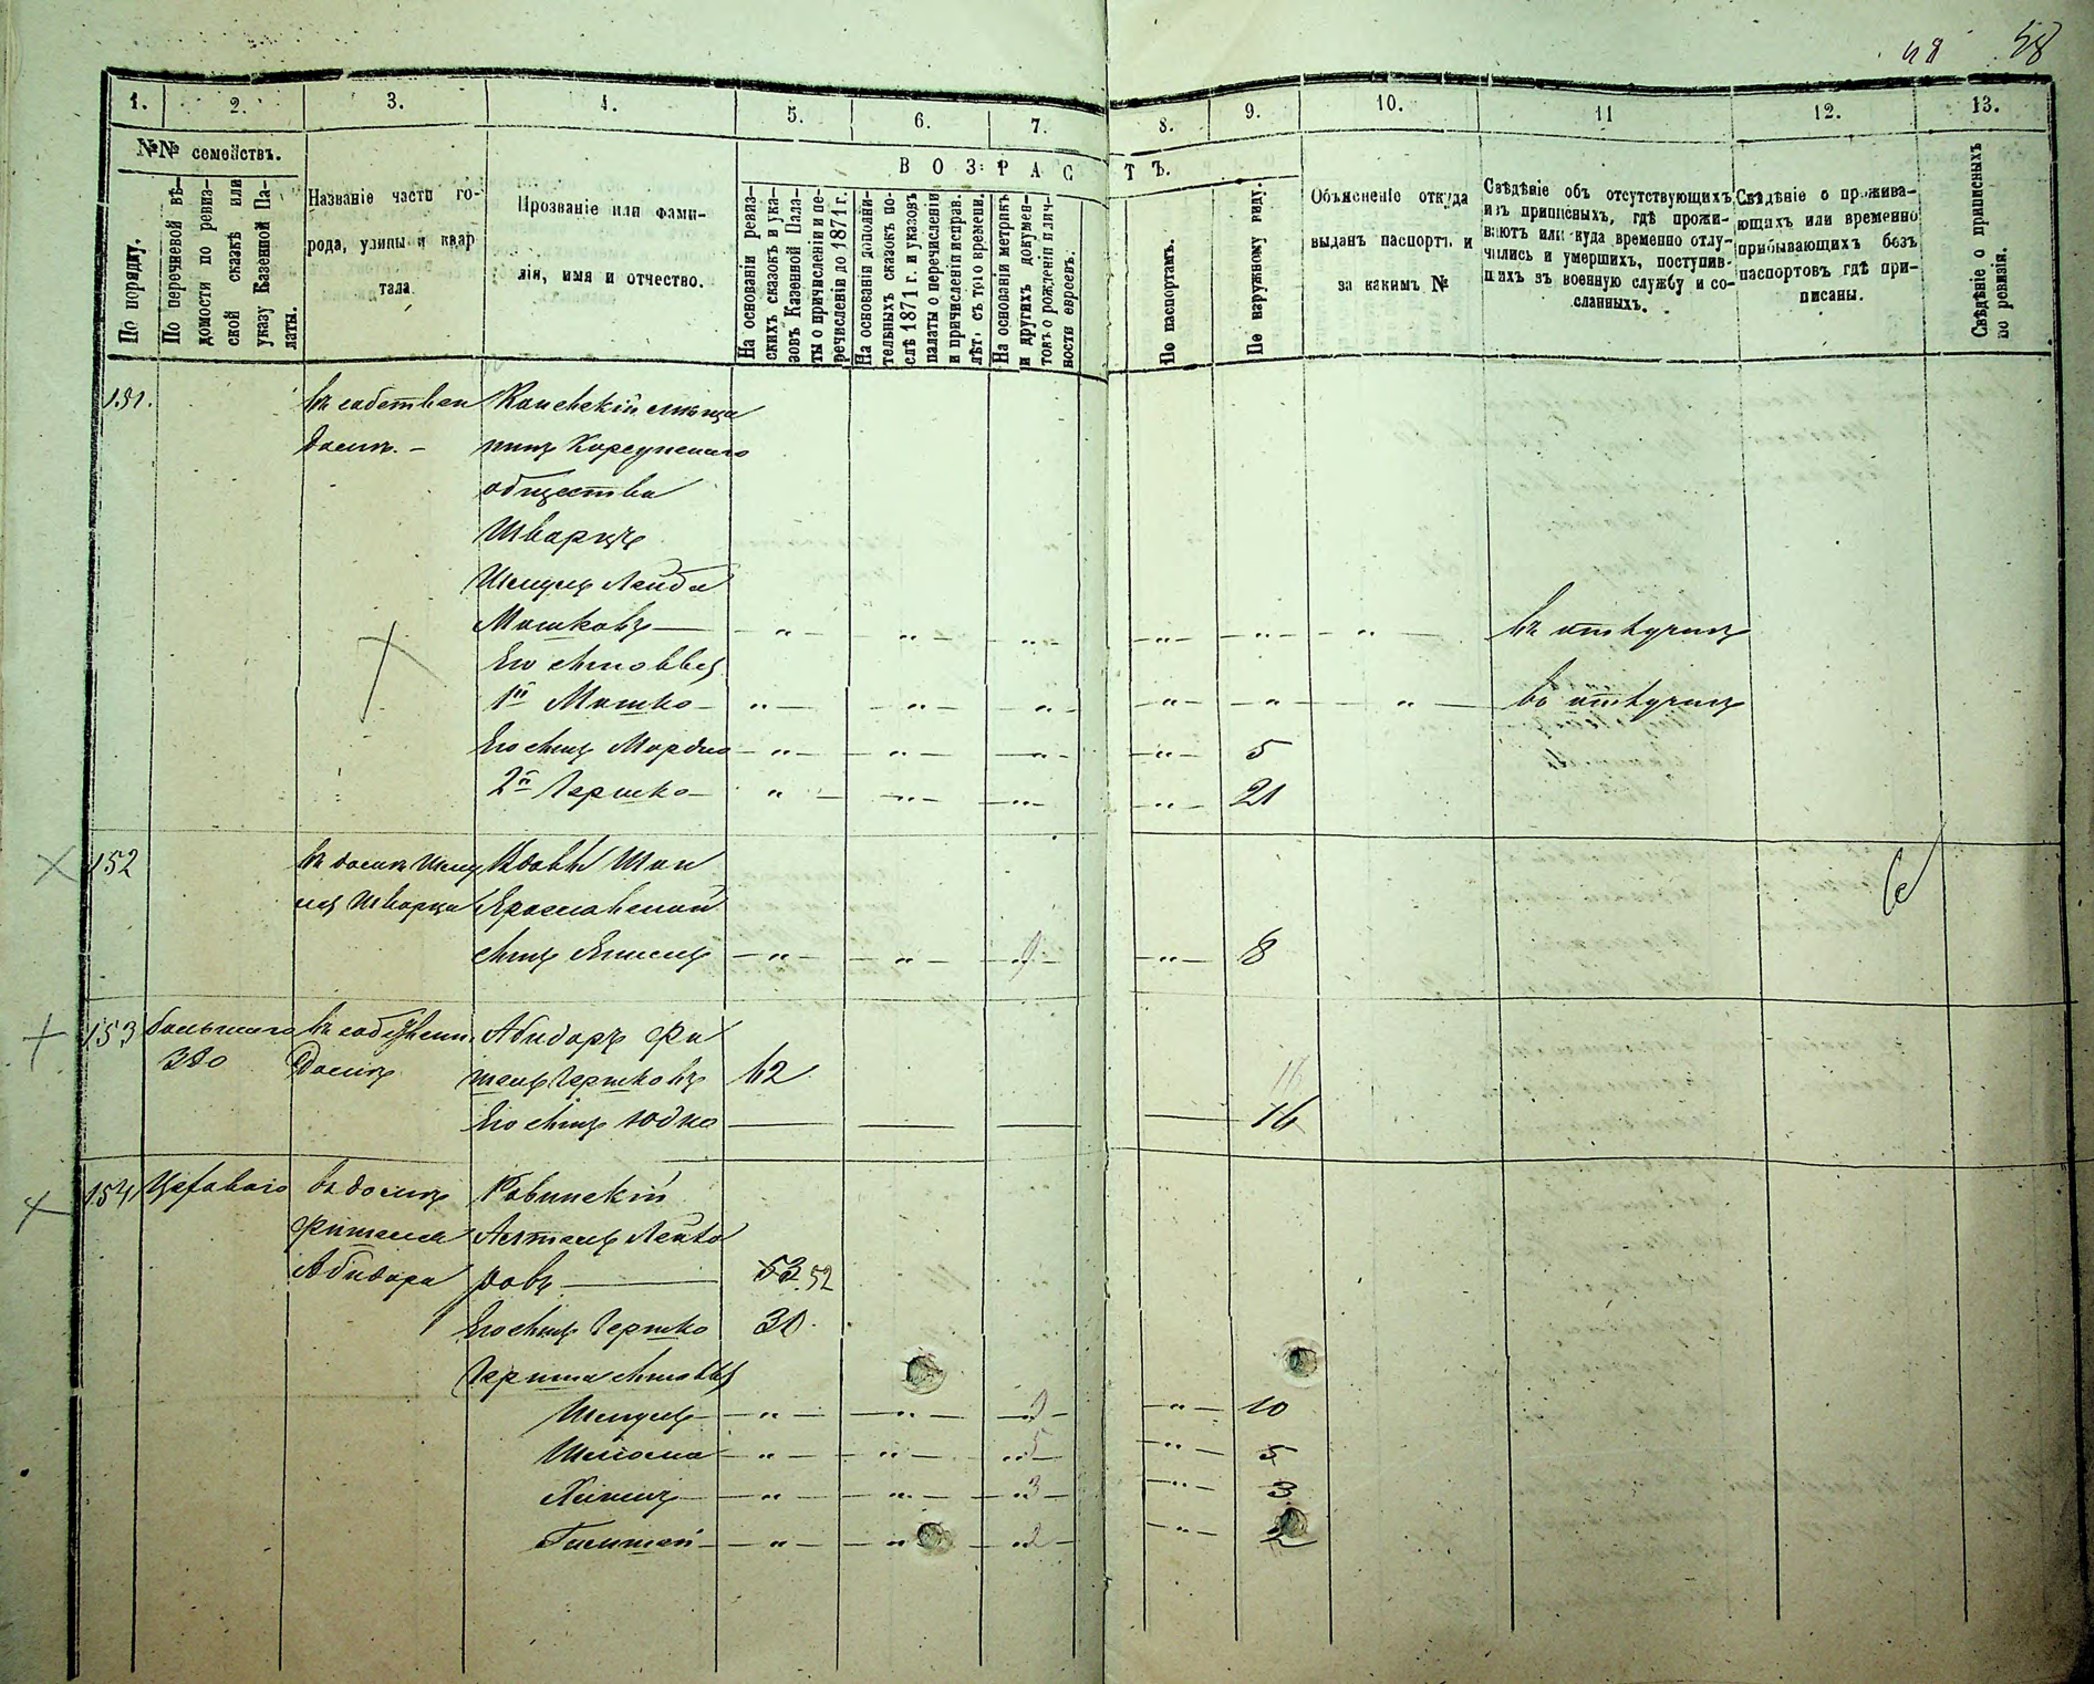 48 58
1. 2. 3. 4. 5. 6. 7. 8. 9. 10. 11 12. 13.
№№ семействъ.
По порядку.
По перечневой вѣ-
домости по ревиз-
ской сказкѣ или
указу Казенной Па-
латы.
Названіе части го-
рода, улицы и квар
тала.
Прозваніе или фами-
лія, имя и отчество.
ВОЗРАСТЪ.
На основаніи ревиз-
скихъ сказокъ и ука-
зовъ Казенной Пала-
ты о причисленіи и пе-
речисленіи до 1871 г.
На основаніи дополни-
тельныхъ сказокъ по-
слѣ 1871 г. и указовъ
палаты о перечисленіи
и причисленіи исправ.
лѣт. съ того времени.
На основаніи метрикъ
и другихъ докумен-
товъ о рожденіи и лич-
ности евреевъ.
По паспортамъ.
По наружному виду.
Объясненіе откуда
выданъ паспортъ и
за какимъ №
Свѣдѣніе объ отсутствующихъ
изъ приписныхъ, гдѣ прожи-
ваютъ или куда временно отлу-
чились и умершихъ, поступив-
шихъ въ военную службу и со-
сланныхъ.
Свѣдѣніе о прожива-
ющихъ или временно
прибывающихъ безъ
паспортовъ гдѣ при-
писаны.
Свѣдѣніе о приписныхъ
по ревизіи.
151. въ собствен Каневскій мѣща
домѣ. — нинъ Корсунскаго
общества
Шварцъ
Шмуль Лейба
Мошковъ — " — " — " — " — " — " — въ отлучкѣ
Его сыновья
1й Мошко — " — " — " — " — " — " — въ отлучкѣ
Его сынъ Мордко — " — " — " — " — 5
2й Гершко — " — " — " — " — 21
152 въ домѣ Шму Вдовы
ля Шварца Ярославской
сынъ — " — " — 9 — " — 8
153 большаго въ собствен. Абидоръ Фи
380 домѣ шель Гершковъ 62
Его сынъ Юдко — — — — 16
154 въ домѣ Равинскій
Фишеля
Абидора ровъ — 53 52
Его сынъ Гершко 30
Герша сыновья
Шмуль — " — " — 9 — " — 10
Шлиома — " — " — 5 — " — 5
Хаимъ — " — " — 3 — " — 3
— " — " — 2 — " — 2